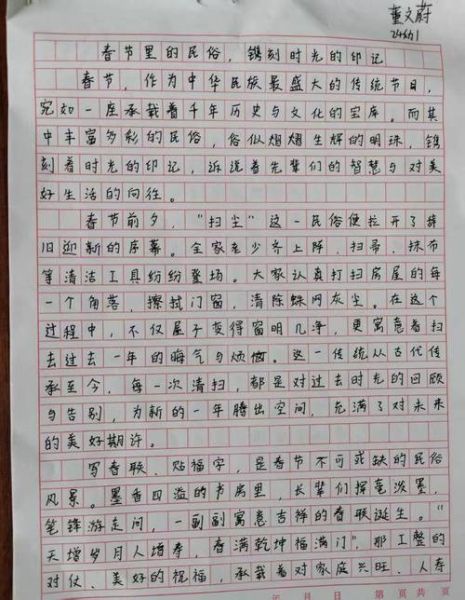 董文蔚
春节里的民俗，镌刻时光的印记
春节，作为中华民族最盛大的传统节日，
宛如一座承载着千年历史与文化的宝库。而其
中丰富多彩的民俗，俗似熠熠生辉的明珠，镌
刻着时光的印记，诉说着先辈们的智慧与对美
好生活的向往。
春节前夕，“扫尘”这一民俗便拉开了辞
旧迎新的序幕。全家老少齐上阵，扫帚、抹布
等清洁工具纷纷登场。大家认真打扫房屋的每
一个角落，擦拭门窗，清除蛛网灰尘。在这个
过程中，不仅屋子变得窗明几净，更寓意着扫
去过去一年的晦气与烦恼。这一传统从古代传
承至今，每一次清扫，都是对过去时光的回顾
与告别，为新的一年腾出空间，充满了对未来
的美好期许。
写春联、贴福字，是春节不可或缺的民俗
风景。墨香四溢的书房里，长辈们挥毫泼墨，
笔锋游走间，一副副寓意吉祥的春联诞生。“
天增岁月人增寿，春满乾坤福满门”，那工整的
对仗、美好的祝福，承载着对家庭兴旺、人寿
年 月 日 第 页共 页